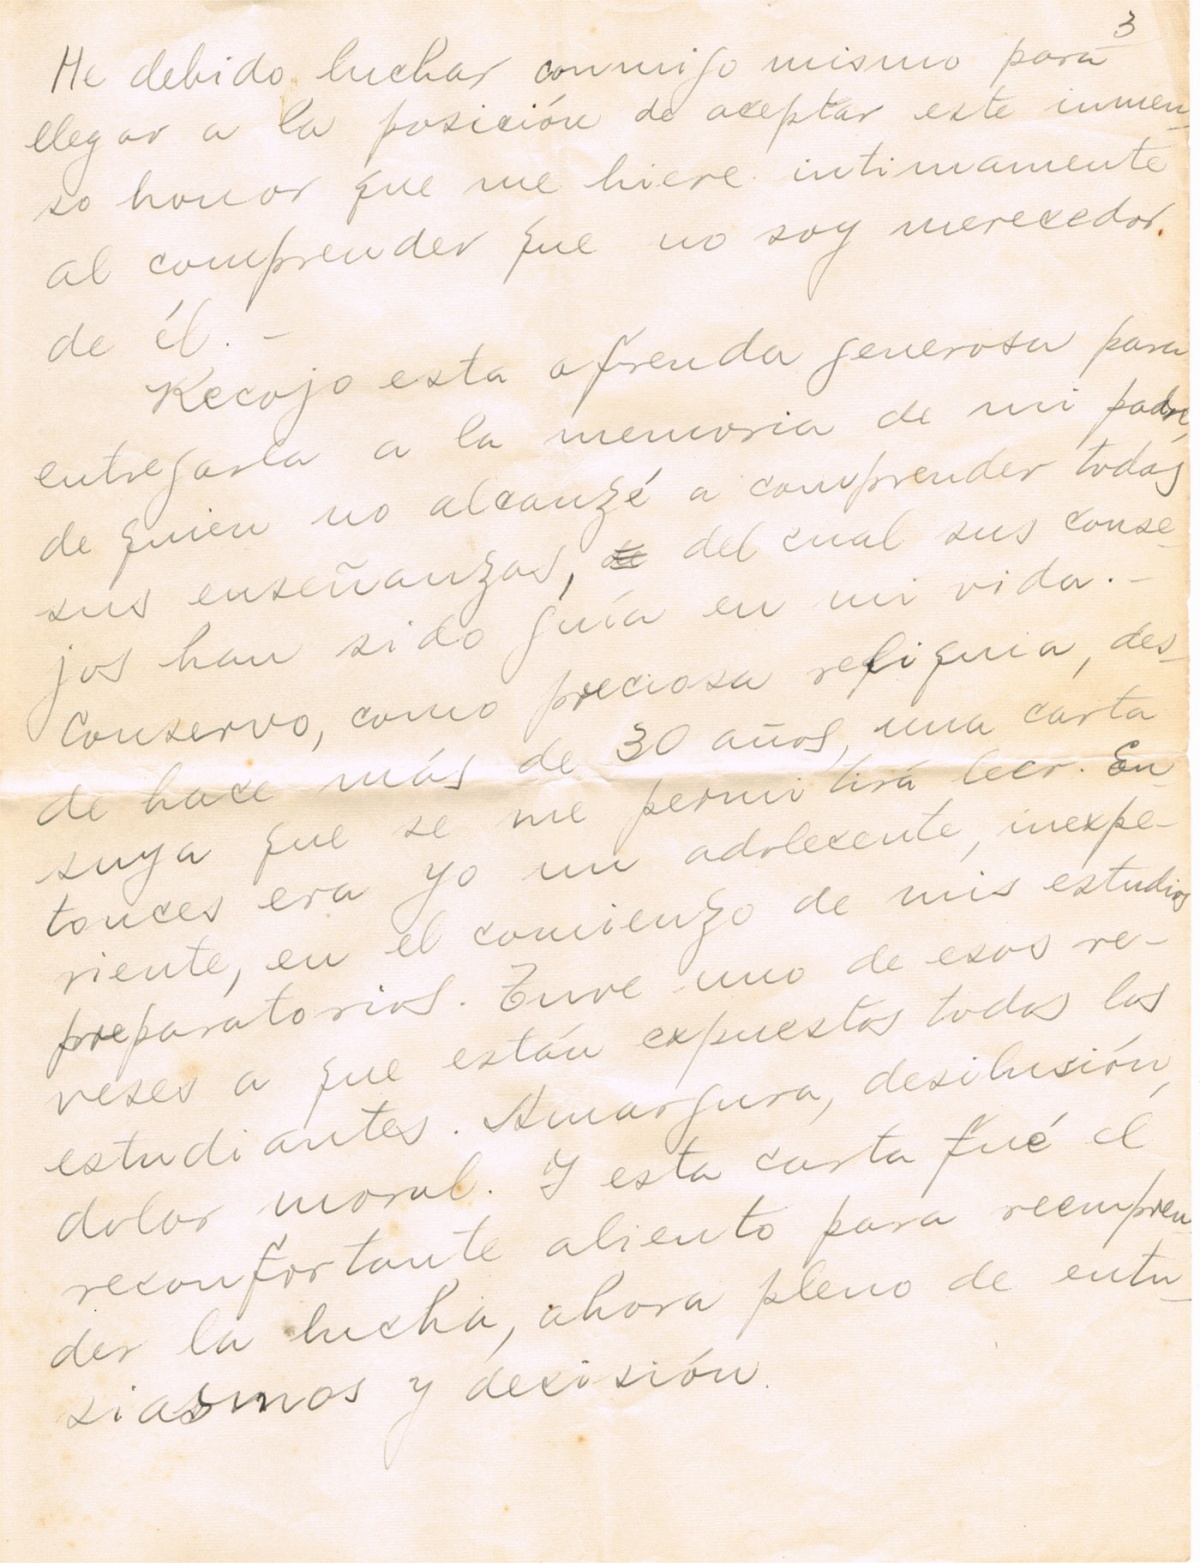 3
He debido luchar conmigo mismo para
llegar a la posición de aceptar este inmen-
so honor que me hiere intimamente
al comprender que no soy merecedor.
de él. -
Recojo esta ofrenda generosa para
entregarla a la memoria de mi padre,
de quien no alcanzé a comprender todas
sus enseñanzas, del cual sus conse-
jos han sido guía en mi vida. -
Conservo, como preciosa reliquia, des-
de hace más de 30 años, una carta
suya que se me permitirá leer. En-
tonces era yo un adolecente, inexpe-
riente, en el comienzo de mis estudios
preparatorios. Tuve uno de esos re-
veses a que están expuestos todos los
estudiantes. Amargura, desilusión,
dolor moral. Y esta carta fué el
reconfortante aliento para reempren-
der la lucha, ahora pleno de entu-
siasmos y decisión.